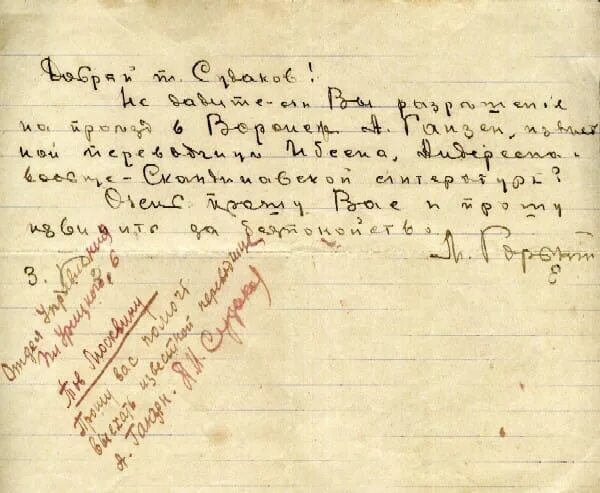 Добрый т. Судаков!
Не дадите-ли Вы разрешение
на проезд в Воронеж А. Ганзен, извест
ной переводчицы Ибсена, Андерсена
вообще - Скандинавской литературы?
Очень прошу Вас и прошу
извинить за беспокойство.
М. Горький
3.
Отдел Управления
Пл. Урицкого, 6
Тов. Москвину
Прошу вас помочь
выехать известной переводчице
А. Ганзен.